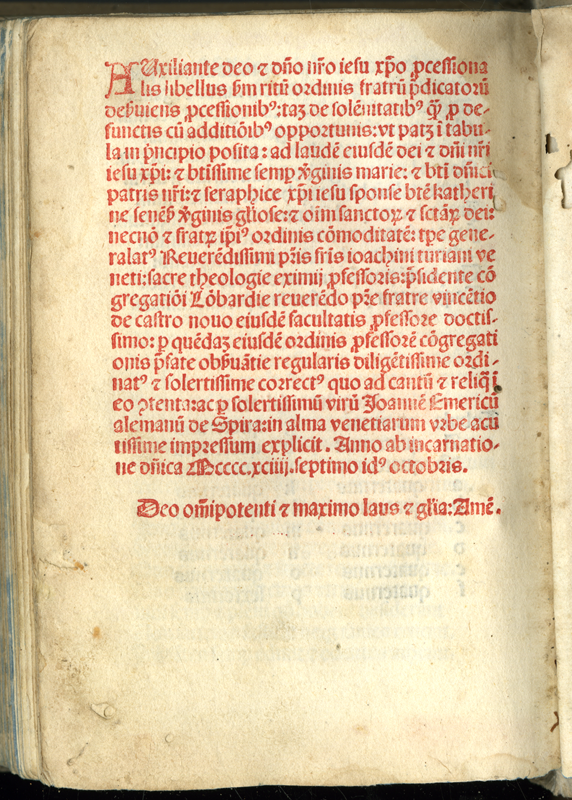 AUxiliante deo ⁊ dño nr̃o iesu xp̃o ꝓcessiona
lis libellus ẜm ritũ ordinis fratrũ p̃dicatorũ
deẜuiens ꝓcessionibꝰ: taʒ de solẽnitatibꝰ qꝫ̃ ꝓ de-
functis cũ additiõibꝰ opportunis: vt patʒ ĩ tabu-
la in p̃ncipio posita: ad laudẽ eiusdẽ dei ⁊ dñi nr̃i
iesu xp̃i: ⁊ btĩssime semꝑ v̾ginis marie: ⁊ btĩ dñici
patris nr̃i: ⁊ seraphice xp̃i iesu sponse btẽ katheri
ne senẽẜ v̾ginis gl̃iose: ⁊ oĩm sanctoꝝ ⁊ sctãꝝ dei:
necnõ ⁊ fratꝝ ip̃iꝰ ordinis cõmoditatẽ: tp̃e gene-
ralatꝰ Reuerẽdissimi pr̃is fr̃is ioachini turiani ve
neti: sacre theologie eximij ꝓfessoris: p̃sidente cõ
gregatiõi Lõbardie reuerẽdo pr̃e fratre vincẽtio
de castro nouo eiusdẽ facultatis ꝓfessore doctis-
simo: ꝑ quẽdaʒ eiusdẽ ordinis ꝓfessorẽ cõgregati
onis p̃fate obẜuãtie regularis diligẽtissime ordi-
natꝰ ⁊ solertissime correctꝰ quo ad cantũ ⁊ reliq̃ ĩ
eo ꝯtenta: ac ꝑ solertissimũ virũ Joannẽ Emericũ
alemanũ de Spira: in alma venetiarum vrbe acu
tissime impressum explicit. Anno ab incarnatio-
ne dñica Mcccc.xciiij. septimo idꝰ octobris.
Deo om̃ipotenti ⁊ maximo laus ⁊ gl̃ia: Amẽ.